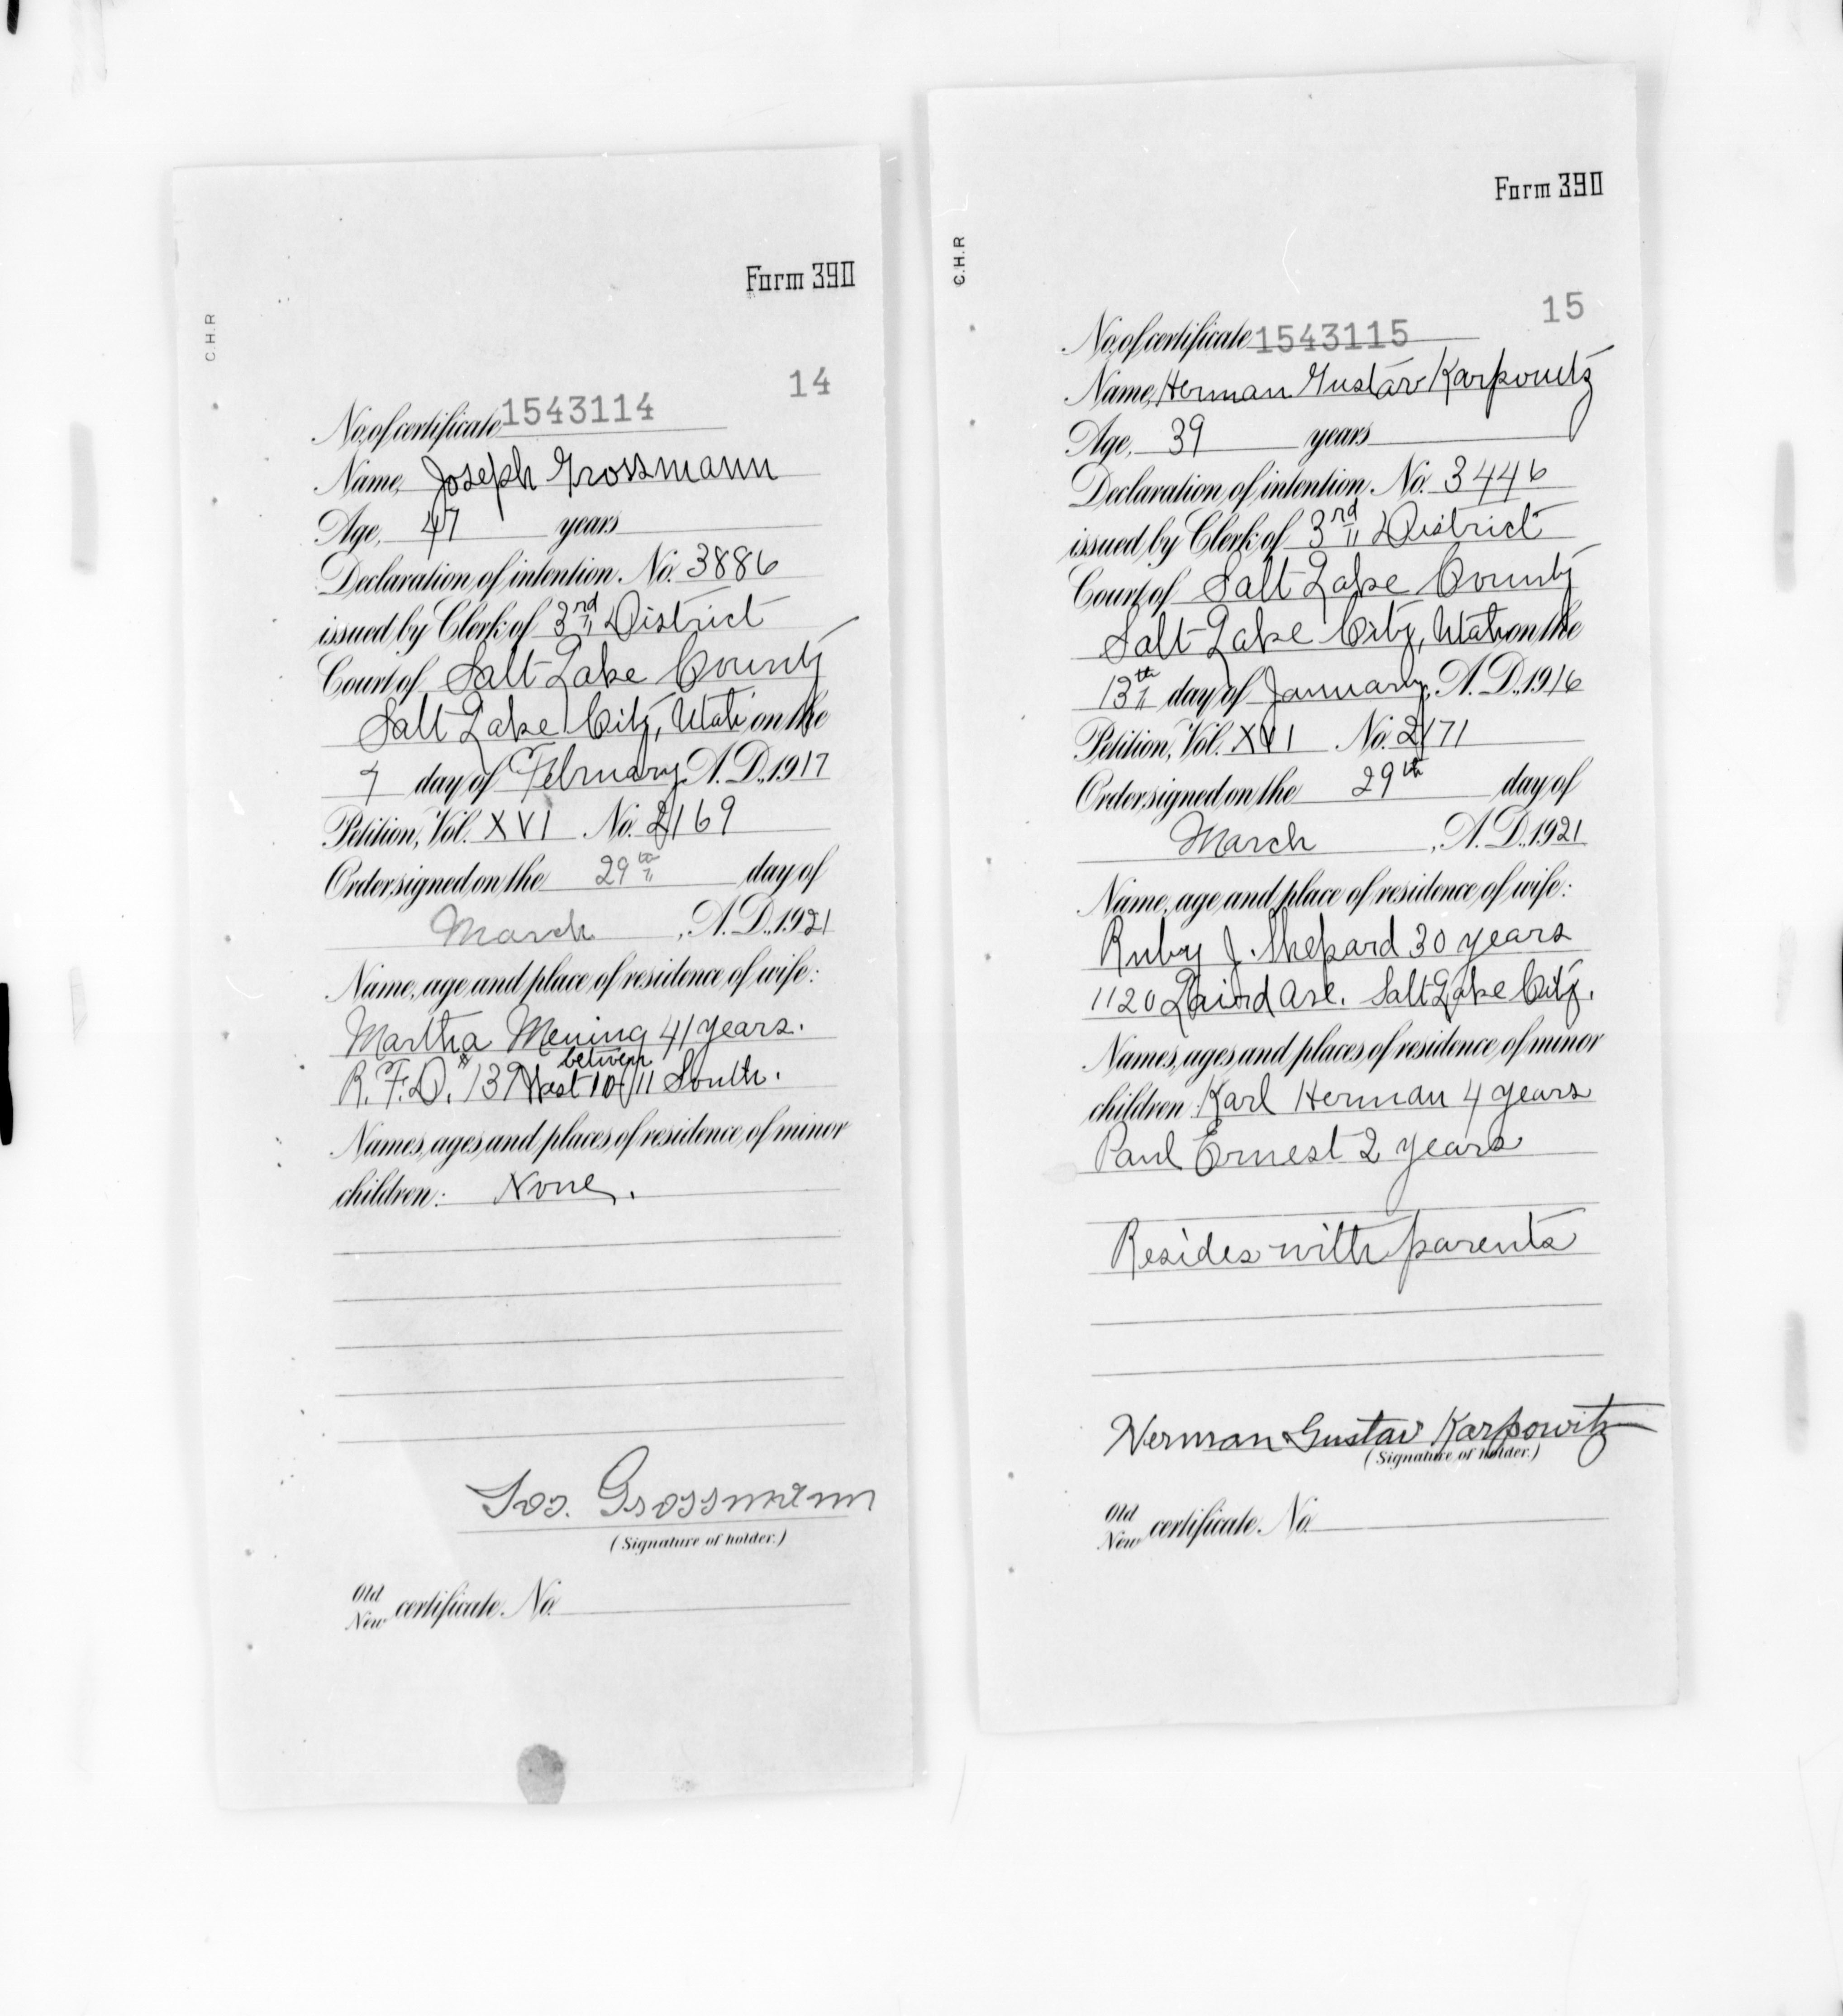 Form 390
C.H.R
14
No. of certificate 1543114
Name, Joseph Grossmann
Age, 47 years
Declaration of intention No. 3886
issued by Clerk of 3rd District
Court of Salt Lake County
Salt Lake City, Utah on the
7 day of February A.D., 1917
Petition, Vol. XVI No. 2169
Order signed on the 29th day of
March, A.D., 1921
Name, age and place of residence of wife:
Martha 41 years.
between
R.F.D. 10 11 South.
Names, ages and places of residence of minor
children: None.
Jos. Grossmann
(Signature of holder.)
Old
New certificate No.
Form 390
C.H.R
15
No. of certificate 1543115
Name, Herman Gustav Karpowitz
Age, 39 years
Declaration of intention No. 3446
issued by Clerk of 3rd District
Court of Salt Lake County
Salt Lake City, Utah on the
13th day of January, A.D., 1916
Petition, Vol. XVI No. 2171
Order signed on the 29th day of
March, A.D., 1921
Name, age and place of residence of wife:
Ruby J. Shepard 30 years
1120 Laird Ave. Salt Lake City.
Names, ages and places of residence of minor
children: Karl Herman 4 years
Paul Ernest 2 years
Resides with parents
Herman Gustav Karpowitz
(Signature of holder.)
Old
New certificate No.